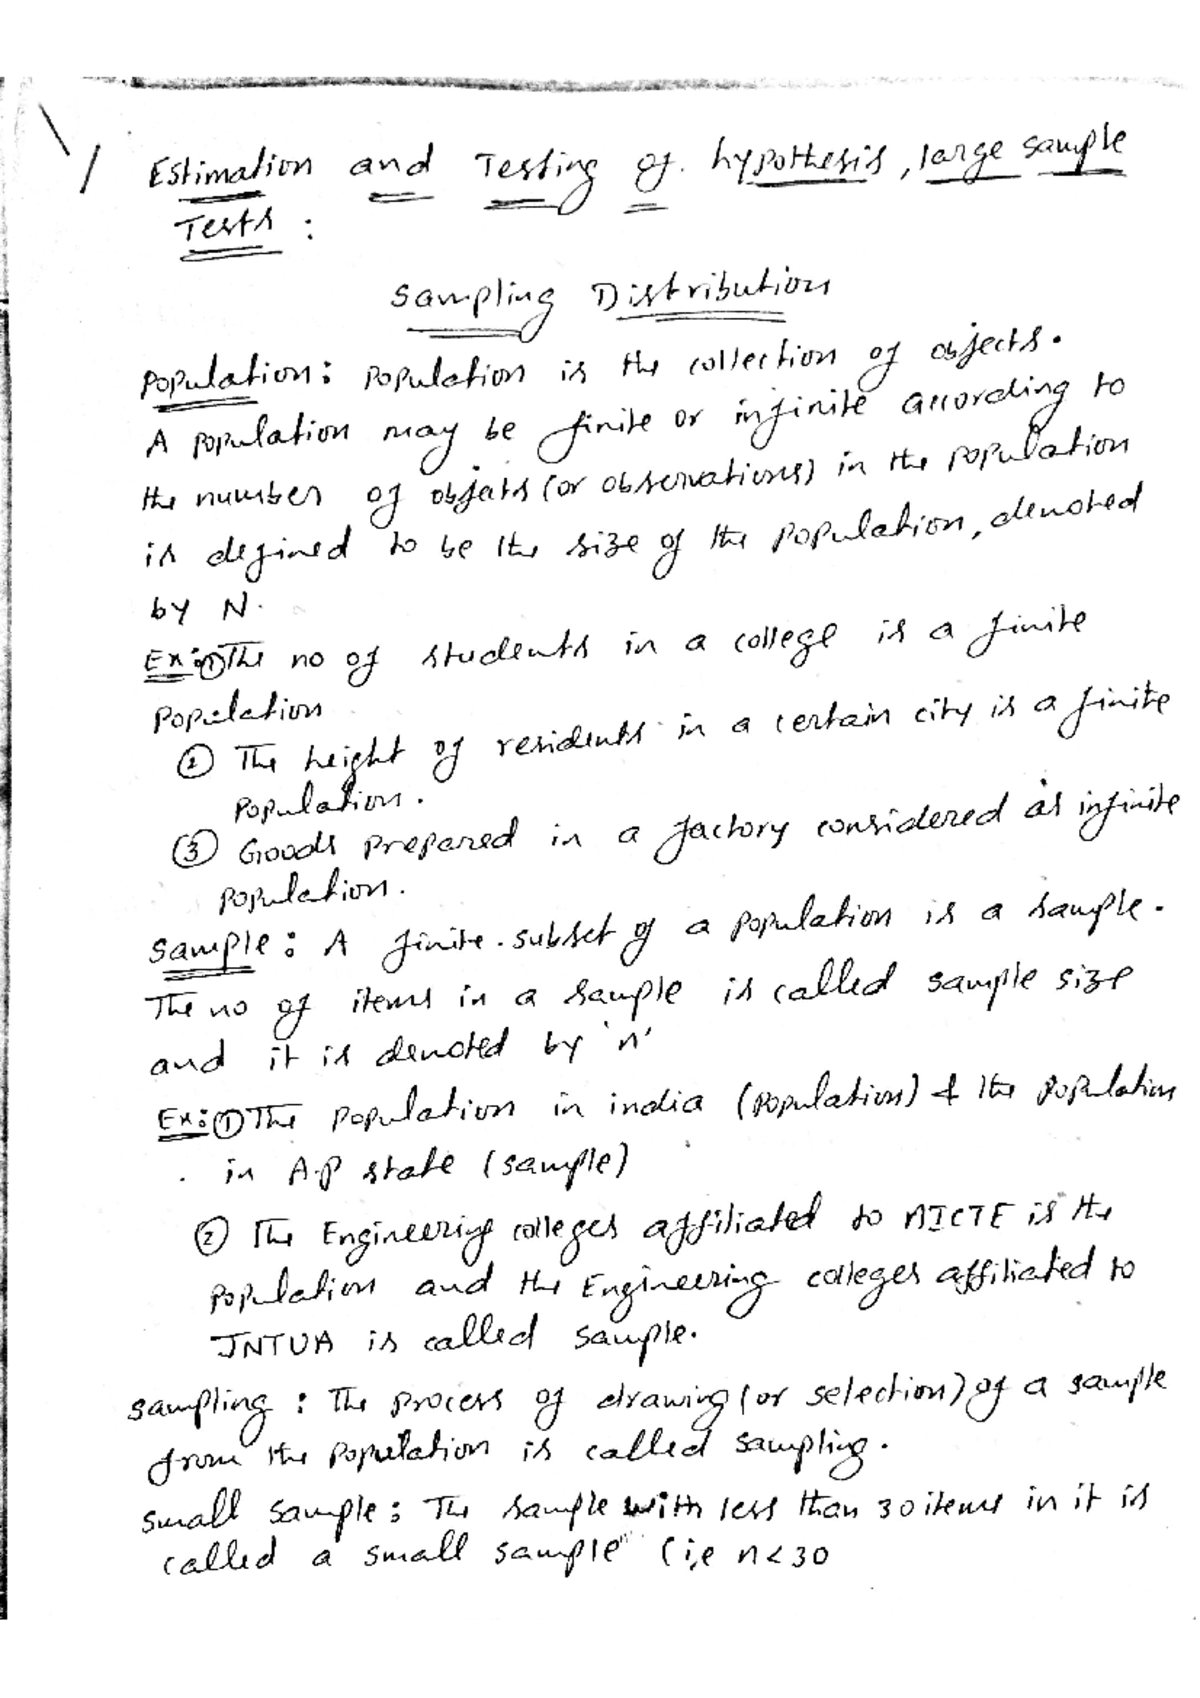 Estimation and Testing of hypothesis, large sample
Tests :
Sampling Distribution
Population: Population is the collection of objects.
A population may be finite or infinite according to
the number of objects (or observations) in the population
is defined to be the size of the population, denoted
by N.
Ex:① The no of students in a college is a finite
Population
② The height of residents in a certain city is a finite
population.
③ Goods prepared in a factory considered as infinite
population.
Sample: A finite subset of a population is a sample.
The no of items in a sample is called sample size
and it is denoted by 'n'
Ex:① The population in india (population) & the population
in A.P state (sample)
② The Engineering colleges affiliated to AICTE is the
population and the Engineering colleges affiliated to
JNTUA is called sample.
Sampling : The process of drawing (or selection) of a sample
from the population is called sampling.
Small sample: The sample with less than 30 items in it is
called a small sample" (i,e n<30